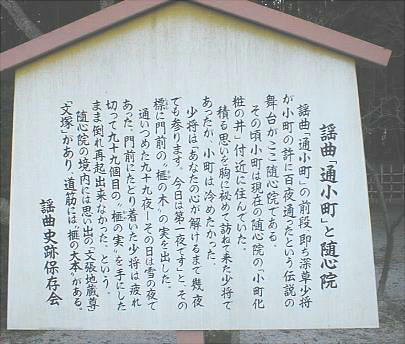 謡曲「通小町」と随心院
謡曲「通小町」の前段、即ち深草少将
が小町の許に百夜通ったという伝説の
舞台がここ随心院である。
その頃小町は現在の随心院の「小町化
粧の井」付近に住んでいた。
積る思いを胸に秘めて訪ねて来た少将で
あったが、小町は冷めたかった。
少将は「あなたの心が解けるまで幾夜
でも参ります。今日は第一夜です」と、その
標に門前の〝榧の木〟の実を出した。
通いつめた九十九夜―その日は雪の夜で
あった。門前にたどり着いた少将は疲れ
切って九十九個目の〝榧の実〟を手にした
まま倒れ再起出来なかった、という。
随心院の境内には思い出の「文張地蔵尊」
「文塚」があり、道筋には〝榧の大木〟がある。
謡曲史跡保存会